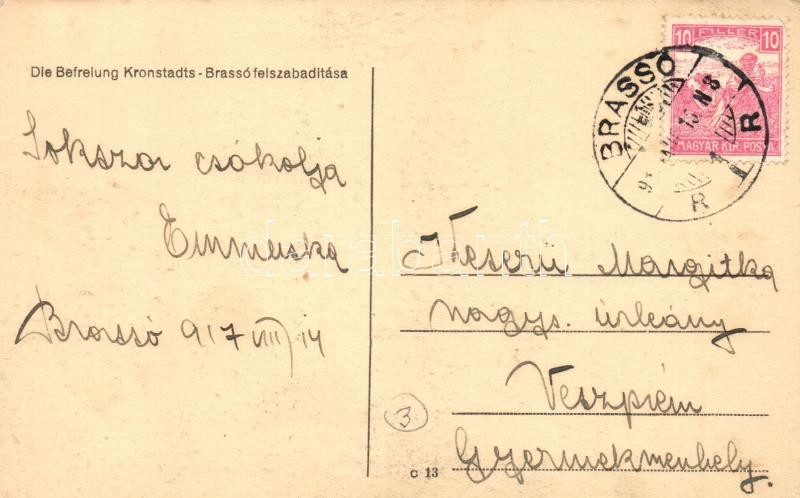 Die Befreiung Kronstadts - Brassó felszabaditása
Sokszor csókolja
Emmuska
Brassó 917 VIII/14
10 FILLER 10
MAGYAR KIR. POSTA
BRASSÓ
Keserü Margitka
nagys. úrleány
Veszprém
Gyermekmenhely.
3
C 13
darabanth